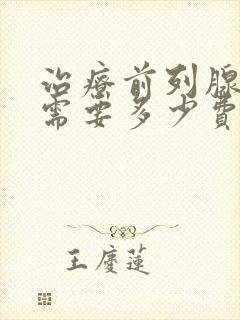 治療前列腺
需要多少費
王慶蓮